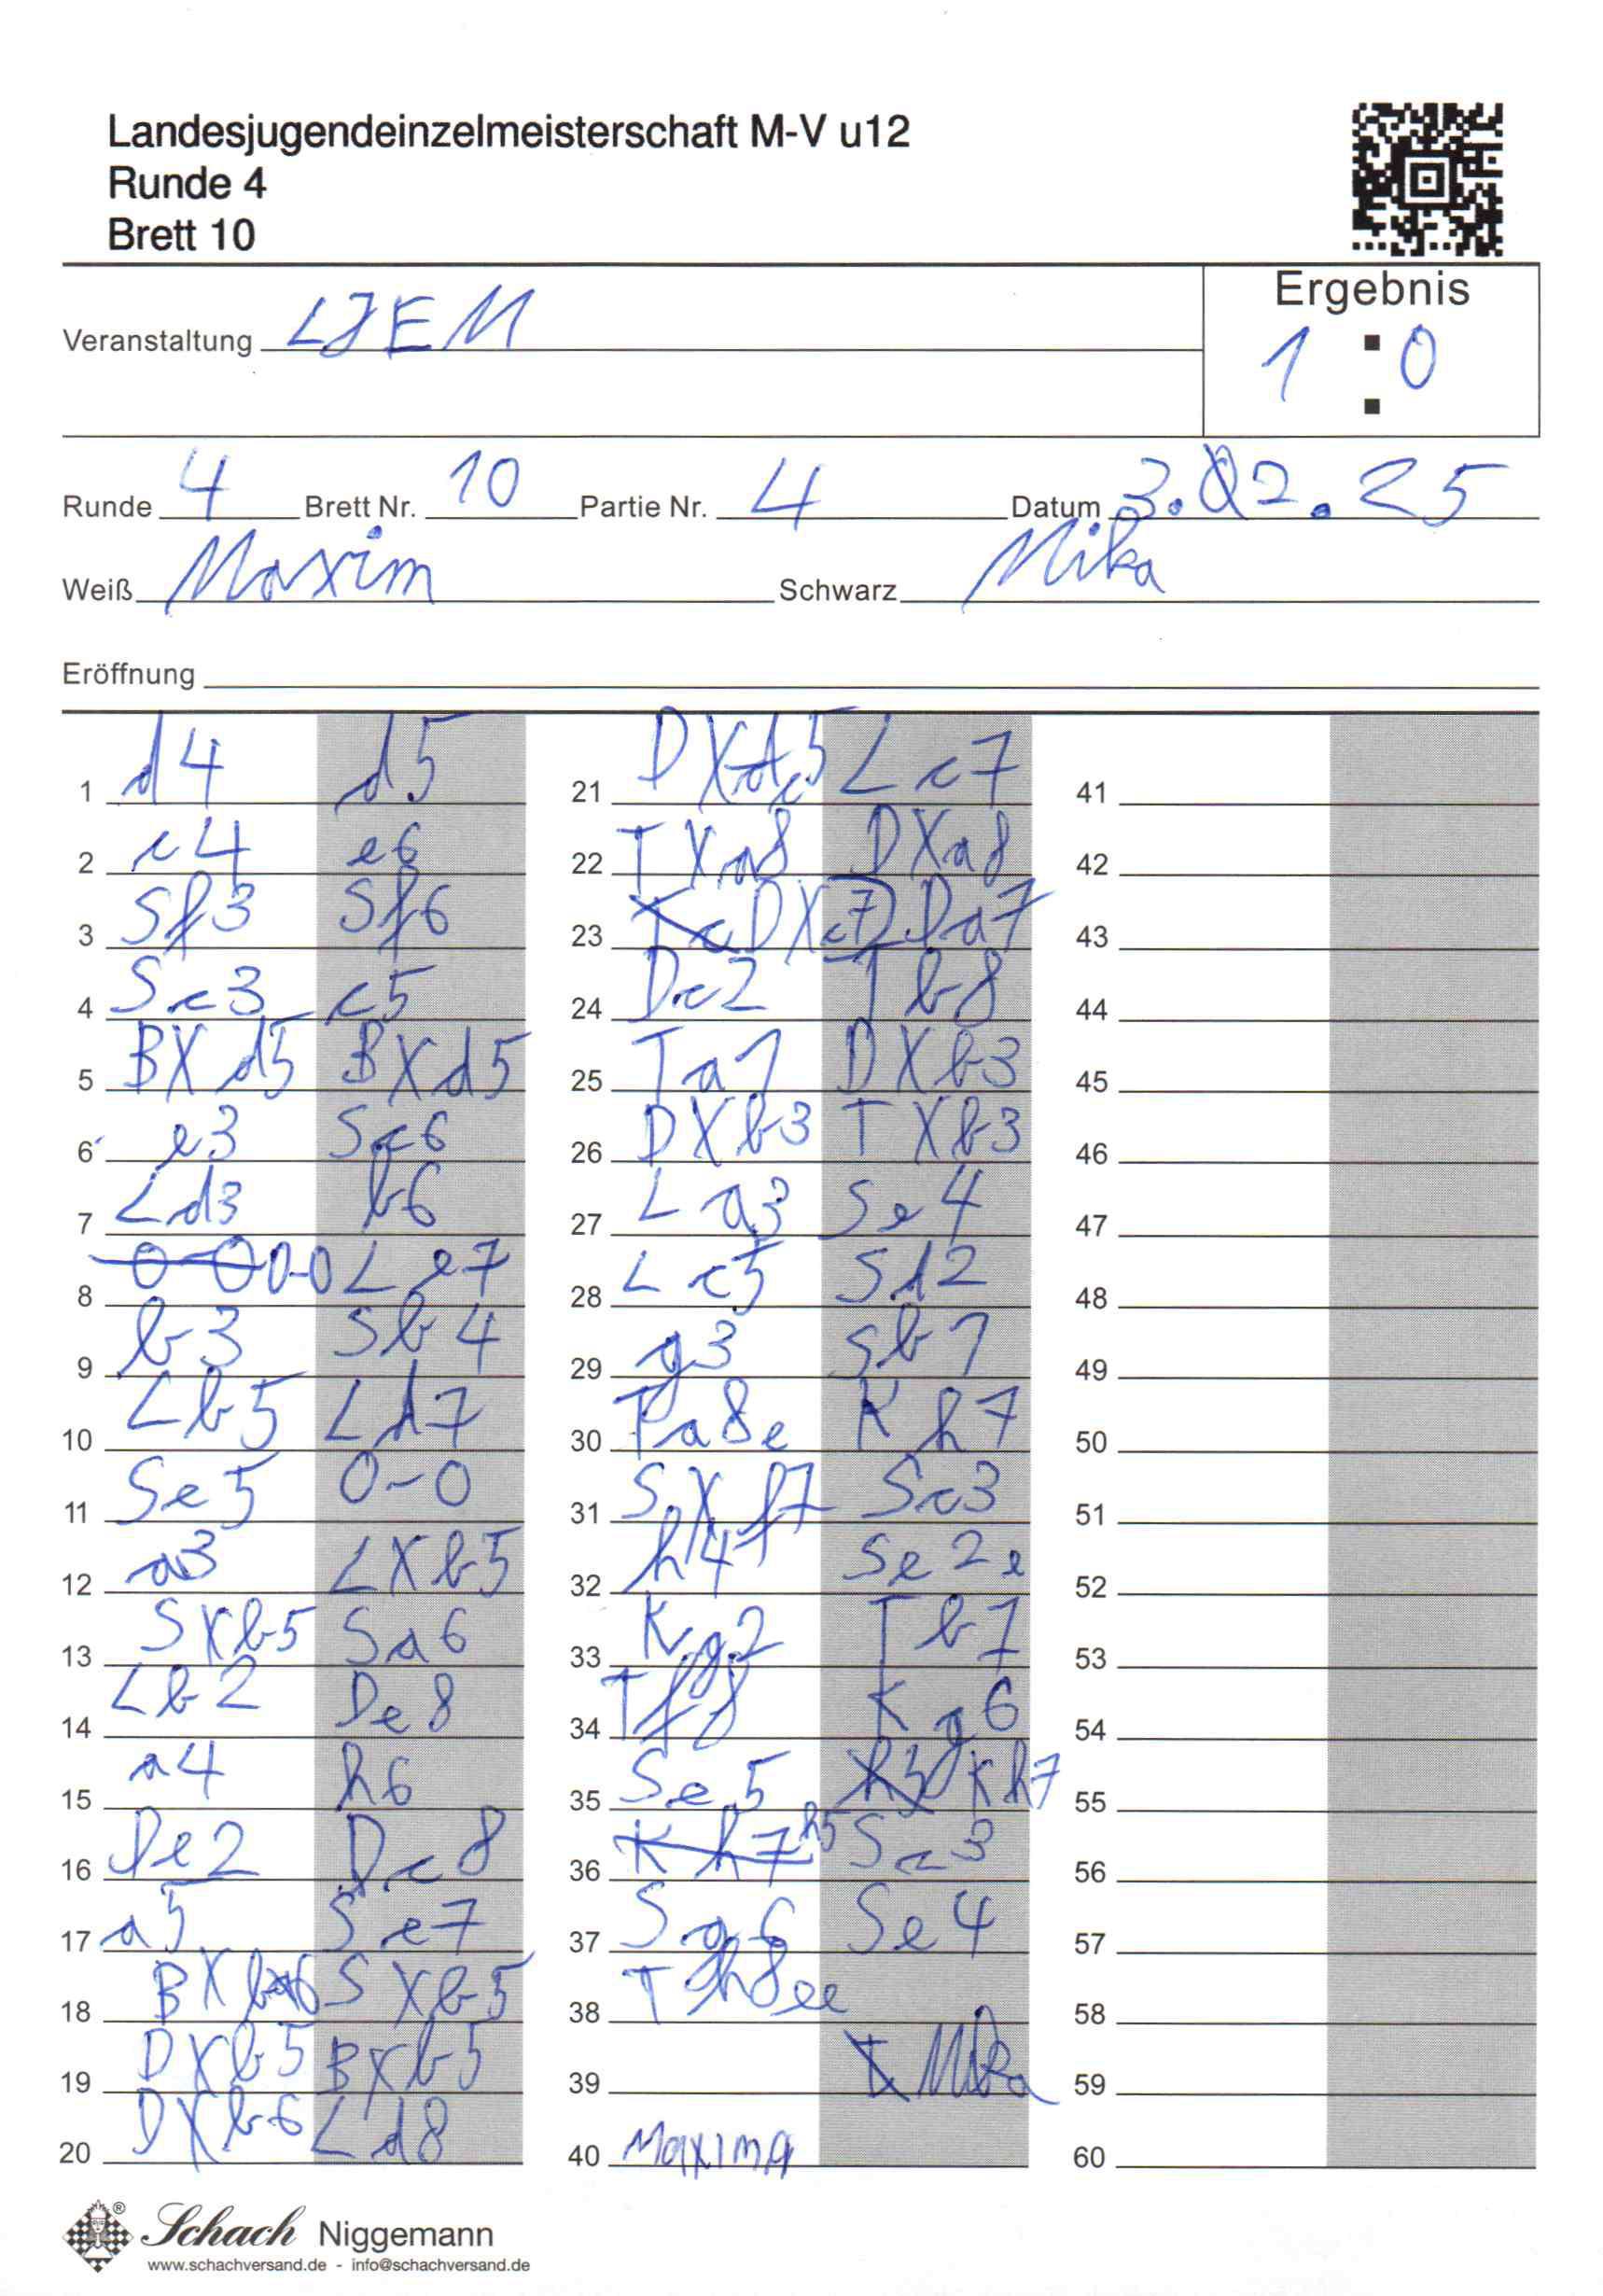 Landesjugendeinzelmeisterschaft M-V u12
Runde 4
Brett 10
Ergebnis
1 : 0
Veranstaltung LJEM
Runde 4 Brett Nr. 10 Partie Nr. 4 Datum 3.02.25
Weiß Maxim Schwarz Mika
Eröffnung
1 d4 d5
2 c4 e6
3 Sf3 Sf6
4 Sc3 c5
5 BXd5 BXd5
6 e3 Sc6
7 Ld3 b6
8 0-0 Le7
9 b3 Sb4
10 Lb5 Ld7
11 Se5 0-0
12 a3 LXb5
13 SXb5 Sa6
14 Lb2 De8
15 a4 h6
16 De2 Dc8
17 a5 Se7
18 BXb6 SXb5
19 DXb5 BXb5
20 DXb6 Ld8
21 DXc5 Lc7
22 TXa8 DXa8
23 DXc7 Da7
24 Dc2 Tb8
25 Ta1 DXb3
26 DXb3 TXb3
27 La3 Se4
28 Lc5 Sd2
29 g3 Sb1
30 Ta8e Kh7
31 SXf7 Sc3
32 h4 Se2e
33 Kg2 Tb1
34 Tf8 Kg6
35 Se5 Kh7
36 h5 Sc3
37 Sg6 Se4
38 Th8ee
39 Mika
40 Maxim
41
42
43
44
45
46
47
48
49
50
51
52
53
54
55
56
57
58
59
60
Schach Niggemann
www.schachversand.de - info@schachversand.de